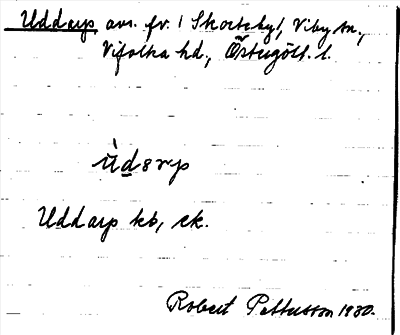 Uddarp avs. fr. ( Skorteby), Viby sn.,
Vifolka hd., Östergötl. l.
ùdərp
Uddarp kb, ek.
Robert Pettersson 1930.